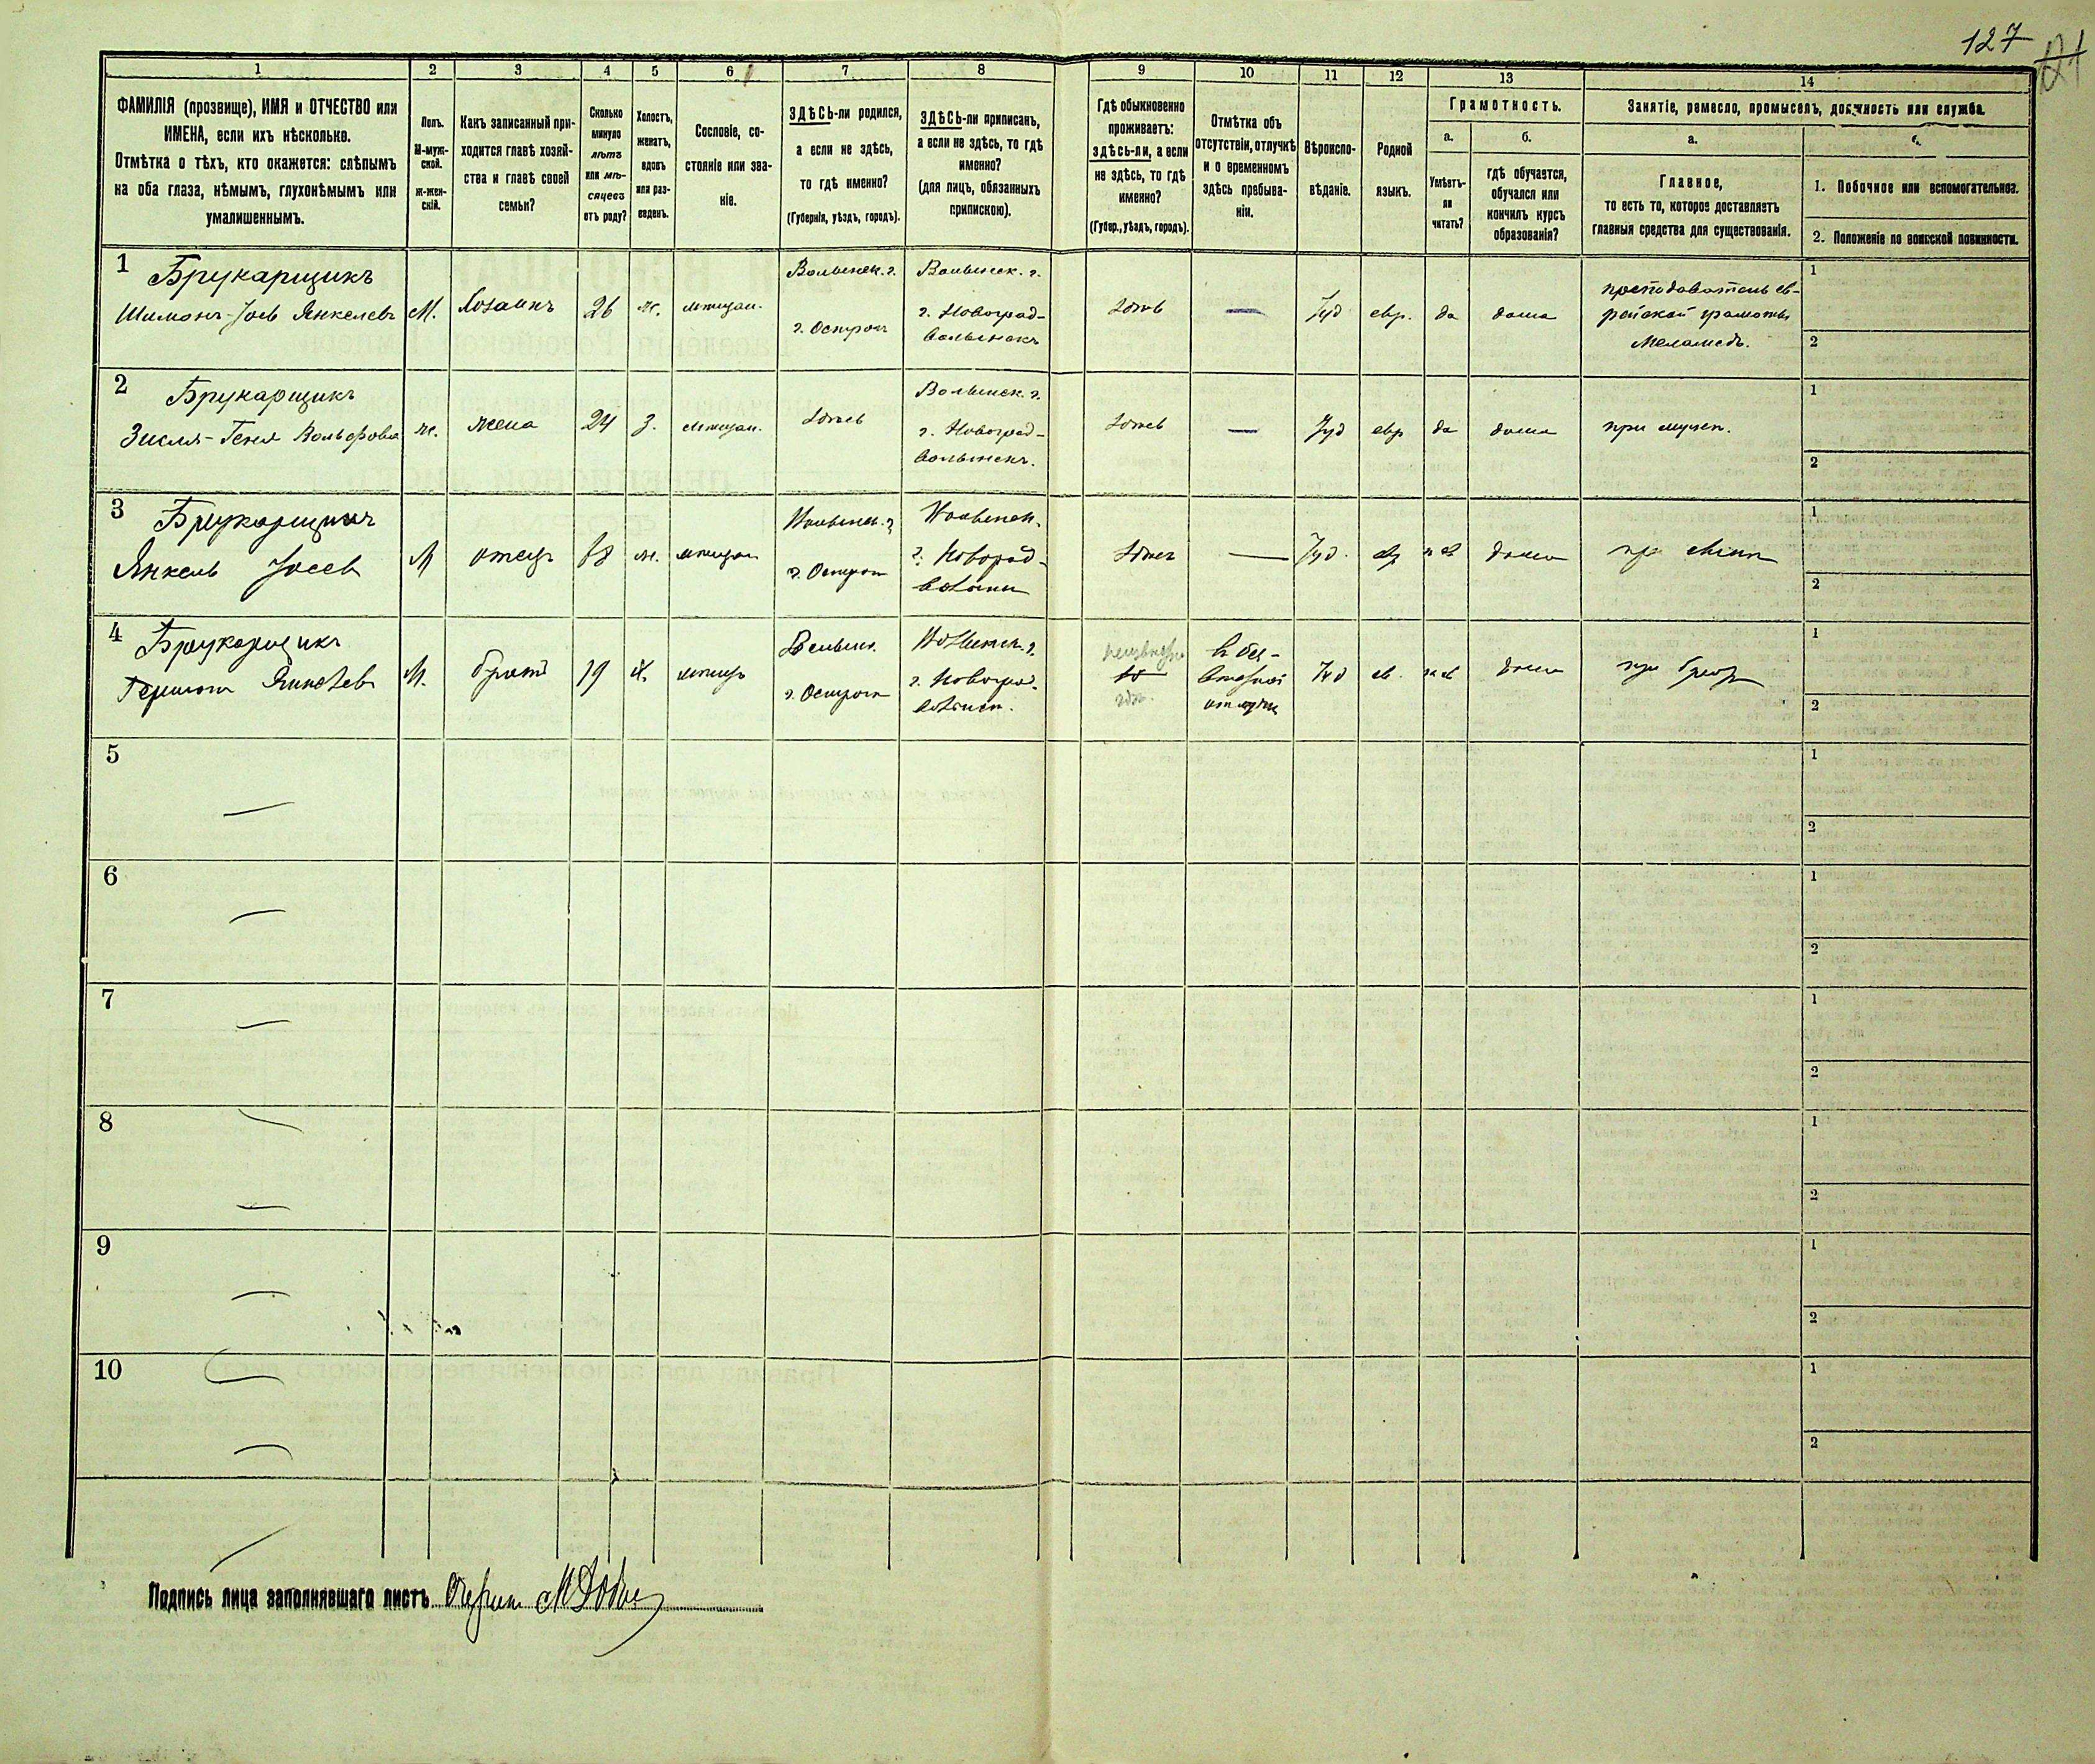 127
1 2 3 4 5 6 7 8 9 10 11 12 13 14
ФАМИЛІЯ (прозвище), ИМЯ и ОТЧЕСТВО или
ИМЕНА, если ихъ нѣсколько.
Отмѣтка о тѣхъ, кто окажется: слѣпымъ
на оба глаза, нѣмымъ, глухонѣмымъ или
умалишеннымъ.
Полъ.
М-муж-
ской.
ж-жен-
скій.
Какъ записанный при-
ходится главѣ хозяй-
ства и главѣ своей
семьи?
Сколько
минуло
лѣтъ
или мѣ-
сяцевъ
отъ роду?
Холостъ,
женатъ,
вдовъ
или раз-
веденъ.
Сословіе, со-
стояніе или зва-
ніе.
ЗДѢСЬ-ли родился,
а если не здѣсь,
то гдѣ именно?
(Губернія, уѣздъ, городъ).
ЗДѢСЬ-ли приписанъ,
а если не здѣсь, то гдѣ
именно?
(для лицъ, обязанныхъ
припискою).
Гдѣ обыкновенно
проживаетъ:
здѣсь-ли, а если
не здѣсь, то гдѣ
именно?
(Губер., уѣздъ, городъ).
Отмѣтка объ
отсутствіи, отлучкѣ
и о временномъ
здѣсь пребыва-
ніи.
Вѣроиспо-
вѣданіе.
Родной
языкъ.
Грамотность.
а.
Умѣетъ-
ли
читать?
б.
гдѣ обучается,
обучался или
кончилъ курсъ
образованія?
Занятіе, ремесло, промыселъ, должность или служба.
а.
Главное,
то есть то, которое доставляетъ
главныя средства для существованія.
б.
1. Побочное или вспомогательное.
2. Положеніе по воинской повинности.
1 Брукарщикъ
Шимонъ-Іось Янкелевъ
М.
Хозаинъ
26
ж.
мѣщан.
Волынск. г.
г. Острогъ
Волынск. г.
г. Новоград-
волынскъ
здѣсь
—
Іуд
евр.
да
дома
преподаватель ев-
рейской грамоты
Меламедъ.
1
2
2 Брукарщикъ
Зисля-Геня Вольфовна
ж.
жена
24
З.
мѣщан.
здѣсь
Волынск. г.
г. Новоград-
волынскъ.
здѣсь
—
Іуд
евр
да
дома
при мужѣ.
1
2
3 Брукарщикъ
Янкель Іосев
М
отец
ж.
мѣщан
Волынск. г
г. Острог
Волынск.
г. Новоград-
волынск
здѣсь
—
Іуд.
ев
дома
при сынѣ
1
2
4 Брукарщикъ
Гершон Янкелев
М.
брат
19
Х.
мѣщ
Волынск.
г. Острог
Волынск. г.
г. Новоград-
волынск.
неизвѣстно
гдѣ.
в без-
вѣстной
отлучкѣ
Іуд
ев.
дома
при брат
1
2
5 —
1
2
6 —
1
2
7 —
1
2
8 —
1
2
9 —
1
2
10 —
1
2
Подпись лица заполнявшаго листъ